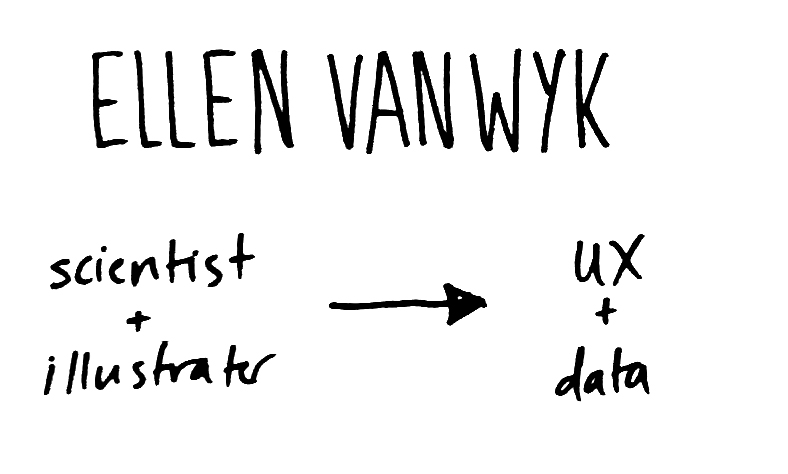 ELLEN VANWYK
scientist
+
illustrater
ux
+
data